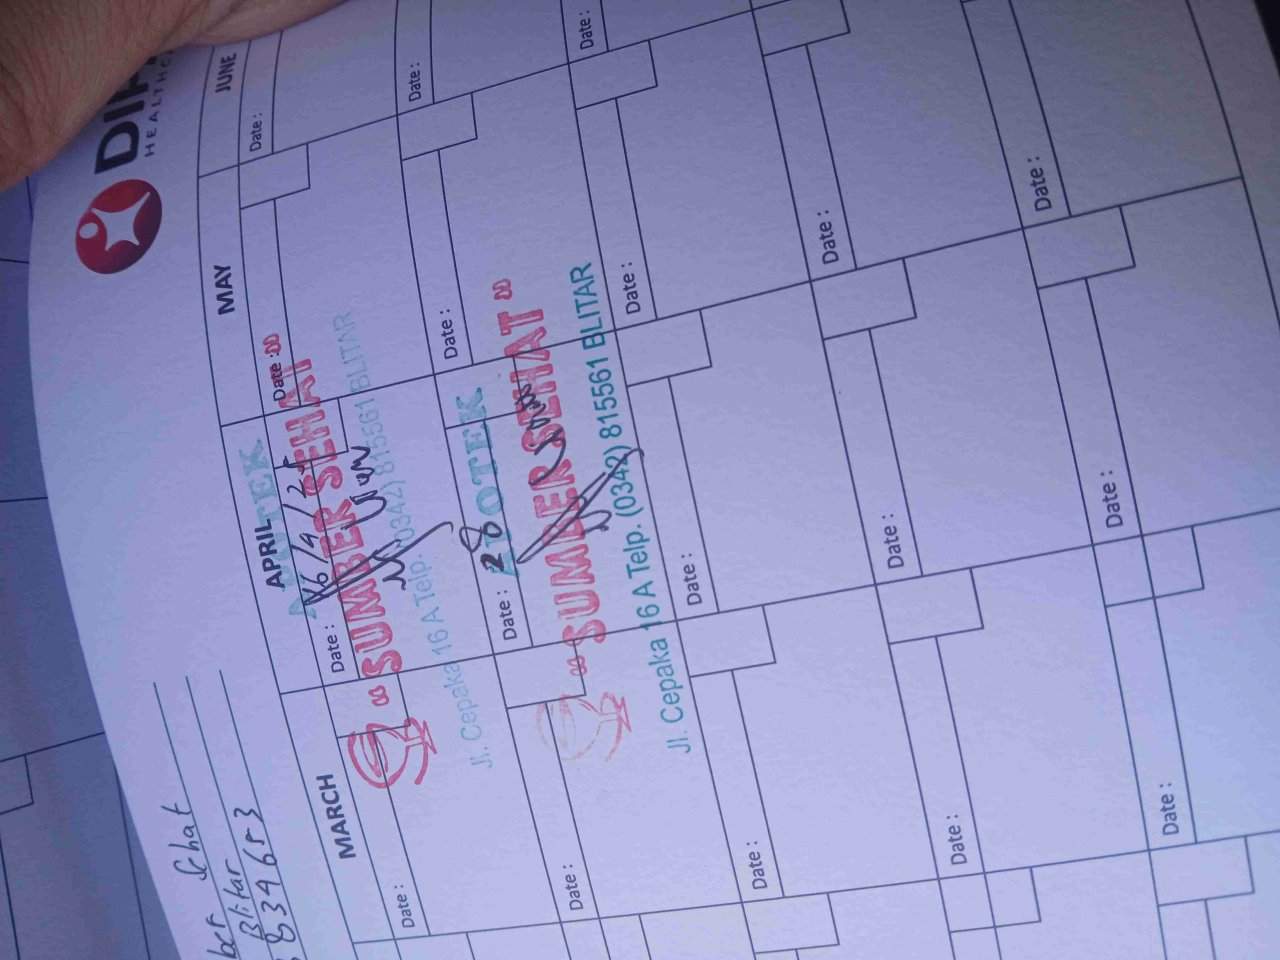 HEALTHC
ber Sehat
Blitar
834653
MARCH
APRIL
MAY
JUNE
Date :
Date :
Date :
Date :
16/4/25
APOTEK
"SUMBER SEHAT"
Jl. Cepaka 16 A Telp. (0342) 815561 BLITAR
Date :
Date : 28
Date :
Date :
APOTEK
"SUMBER SEHAT"
Jl. Cepaka 16 A Telp. (0342) 815561 BLITAR
Date :
Date :
Date :
Date :
Date :
Date :
Date :
Date :
Date :
Date :